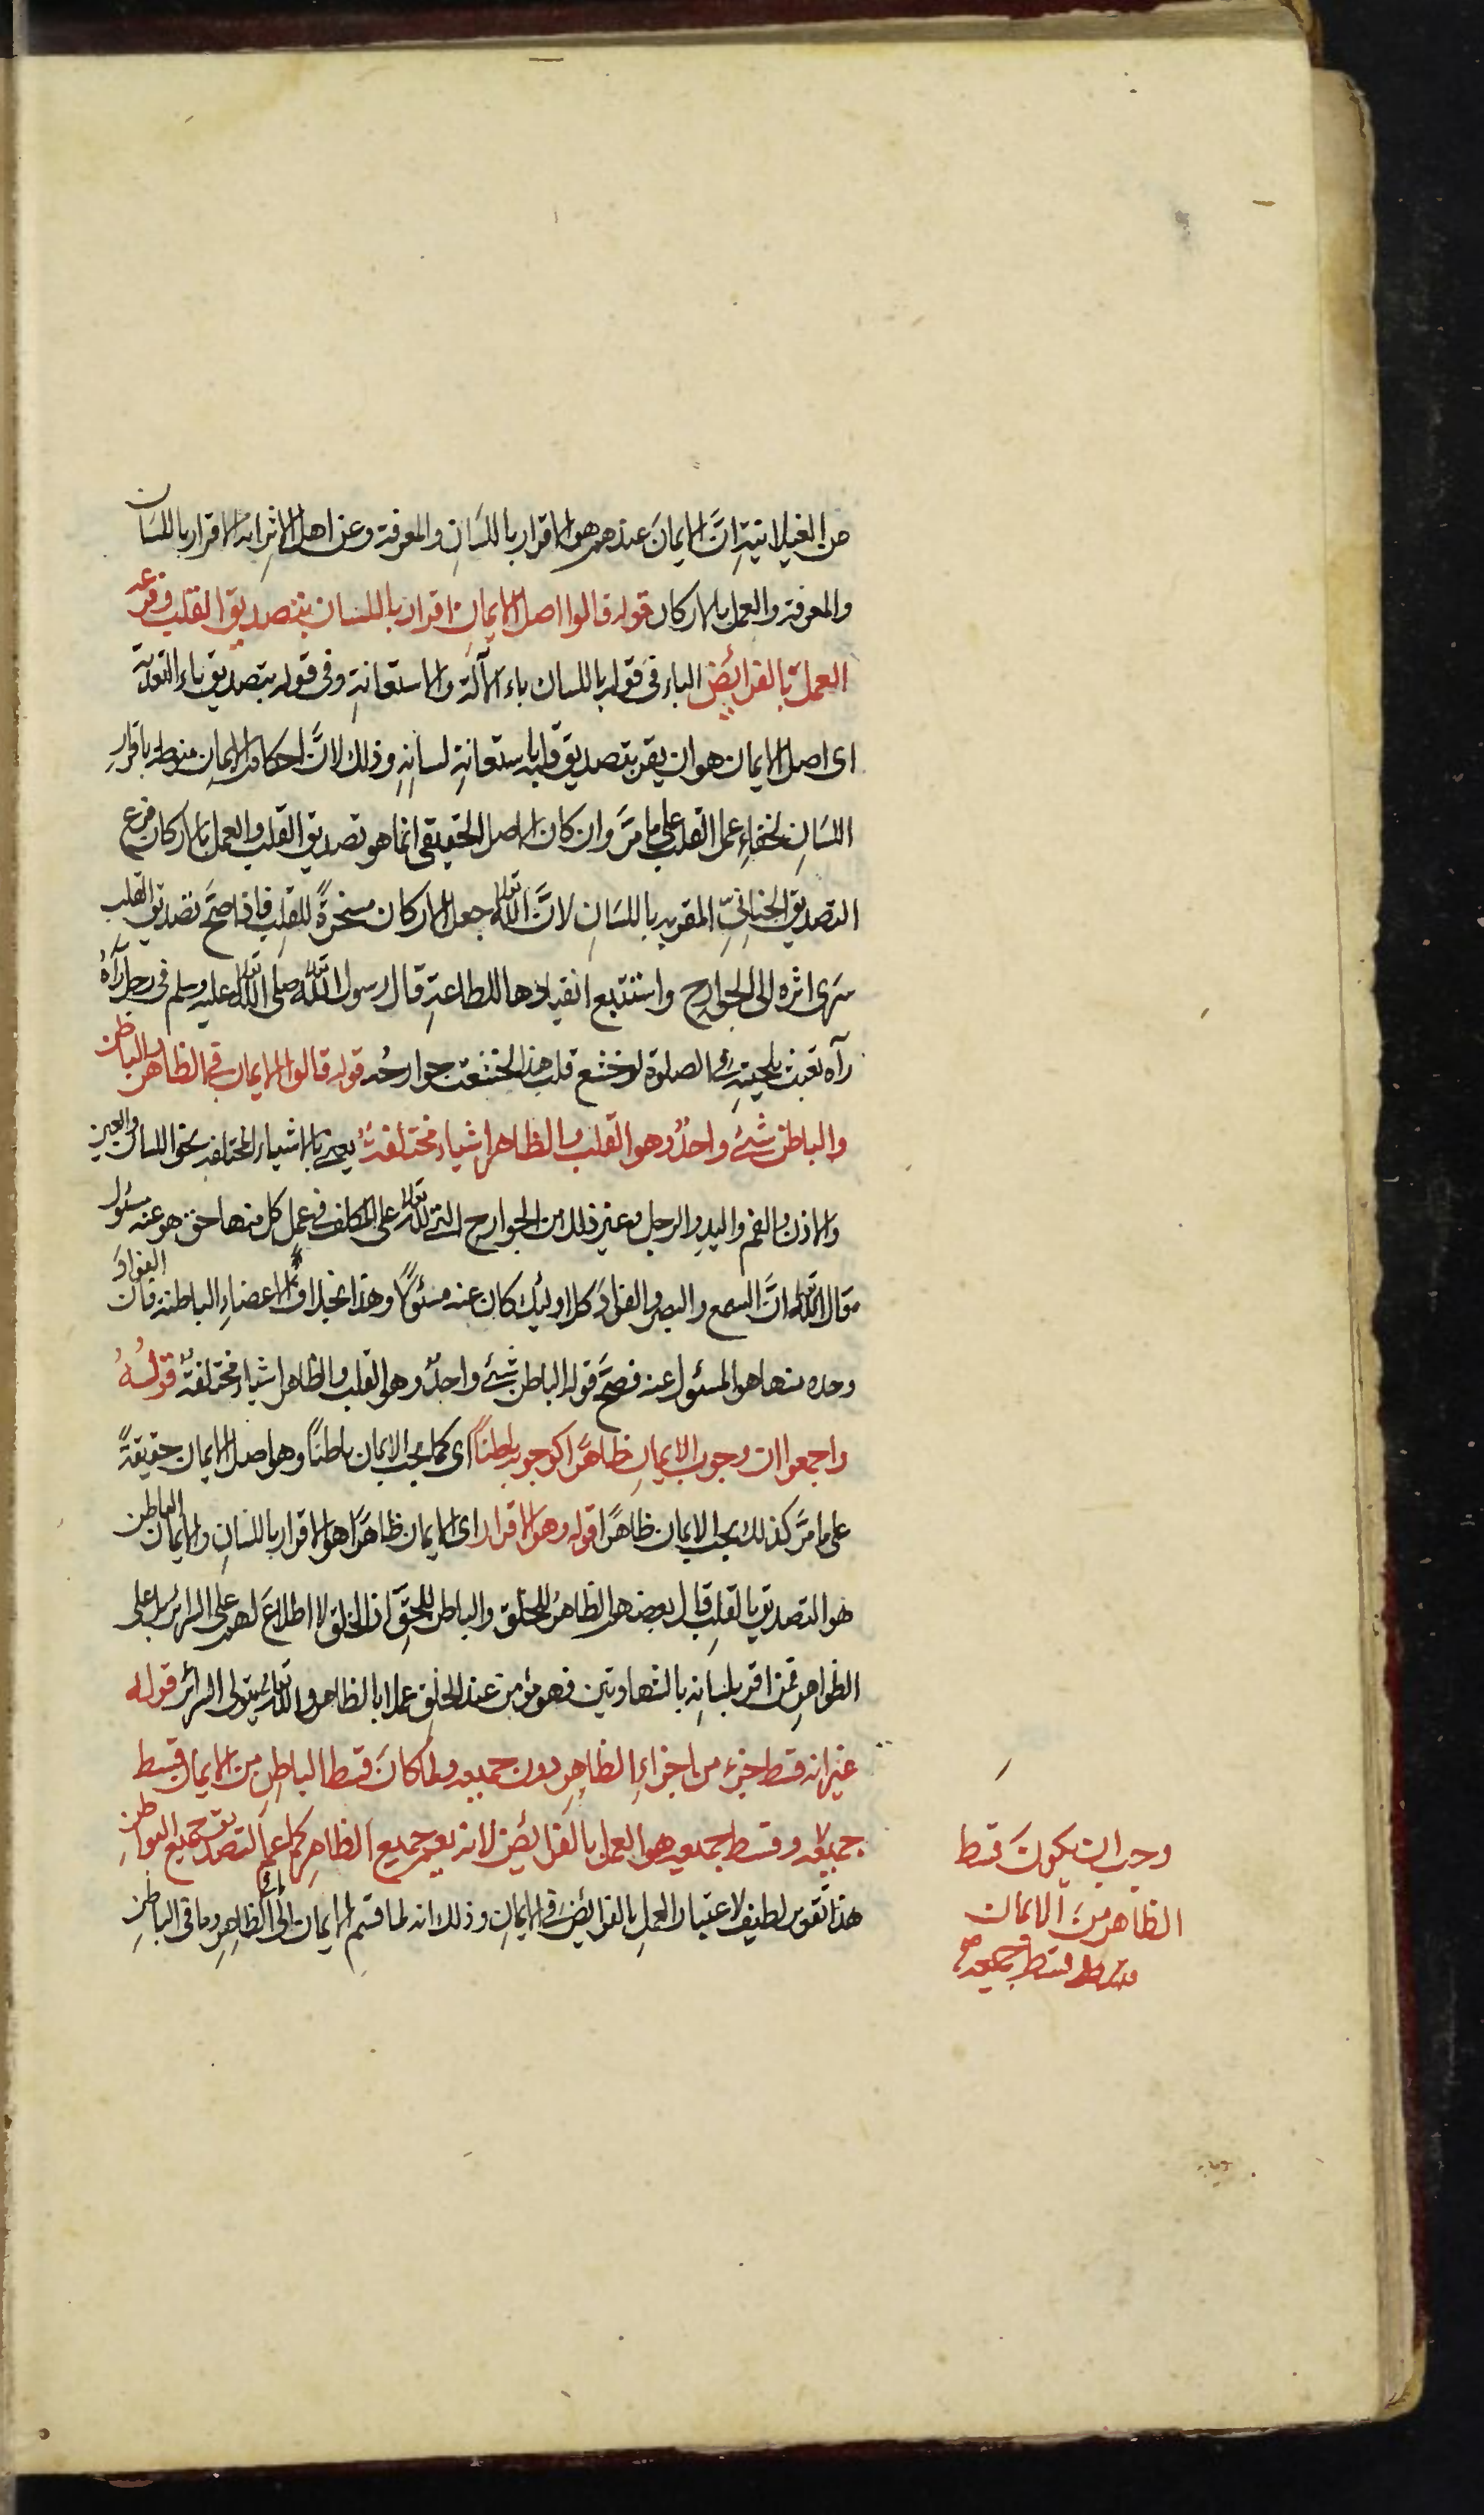 من الغيلانية اِنَّ الايمانَ عندهم هو الاقرار باللسَانِ والمعرفة وعن اهل الاثرِ انه الاقرار باللسَان
والمعرفة والعمل بالاركان قوله قالوا اصل الايمانِ اقرار باللسان بتصديق القلب وفرعه
العمل بالفرائض الباء فى قوله باللسان باء الآلة والاستعانةِ وفى قوله بتصديق باء التعدية
اى اصل الايمان هو ان يقر بتصديق قلبه باستعانةِ لسانِهِ وذلك لانَّ احكام الايمانِ منوطه باقرارِ
اللسَانِ لخفاءِ عمل القلب على ما مرَّ وان كان الاصل الحقيقى انما هو تصديق القلب والعمل بالاركان فرع
التصديق الجنانىِّ المقر به باللسَانِ لانَّ الله تعالى جعل الاركان مسخرةً للقلبِ فاذا صحَّ تصديق القلب
سرى اثره الى الجوارح واستتبع انقيادها للطاعةِ قال رسول الله تعالى صلى الله تعالى عليه وسلم فى رجل رآهُ
رآه تعبث بلحيتهِ فى الصلوة لو خشع قلب هذا لخشعت جوارحُه قوله قالوا الايمان فى الظاهر والباطن
والباطن شئ واحدٌ وهو القلب والظاهر اشياء مختلفةٌ يعنى بالاشياء المختلفة نحو اللسان والعين
والاذن والفم واليد والرجل وغير ذلك من الجوارح التى لله تعالى على المكلف فى عمل كل منها حق هو عنه مسئول
قال الله تعالى انَّ السمع والبصر والفؤادَ كل اولئك كان عنه مسئولًا وهذا بخلاف الاعضاءِ الباطنة فان الفؤادَ
وحده منها هو المسئول عنه فصحَّ قوله الباطن شئ واحدٌ وهو القلب والظاهر اشياء مختلفةٌ قولُهُ
واجمعوا ان وجوب الايمانِ ظاهرًا كوجوبه باطنًا اى كما يجب الايمان باطنًا وهو اصل الايمان حقيقةً
على ما مرَّ كذلك يجب الايمان ظاهرًا قوله وهو الاقرار اى الايمان ظاهرًا هو الاقرار باللسانِ والايمان الباطن
هو التصديق بالقلبِ قال بعضهم الظاهرُ للخلق والباطن للحقِّ اذ الخلق لا اطلاعَ لهم على السرائر بل على
الظواهرِ فمن اقر بلسَانِه بالشهادتين فهو مؤمن عند الخلقِ عملا بالظاهر والله تعالى يتولى السرائر قوله
غير انه قسط جزء من اجزاءِ الظاهِرِ دون جميعه ولما كانَ قسط الباطِنِ من الايمان قسط
جميعه وقسط جميعه هو العمل بالفرائض لانه يعم جميع الظاهِرِ كما عمّ التصديق جميع البواطن
هذا تقوس لطيف لاعتبار العملِ بالفرائض فى الايمانِ وذلك انه لما قسَّم الايمان الى ما فى الظاهِر وما فى الباطنِ
وجب ان يكونَ قسط
الظاهر منَ الايمان
قسط جميعه صح